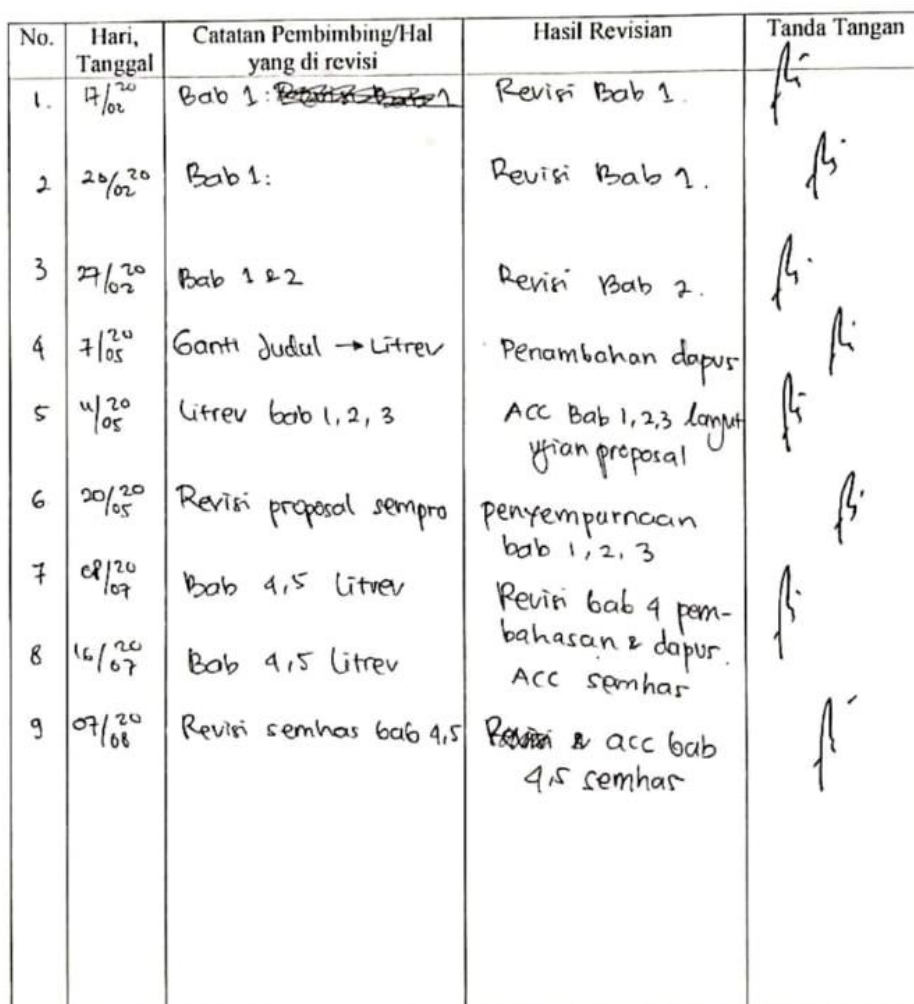 No. Hari, Tanggal Catatan Pembimbing/Hal yang di revisi Hasil Revisian Tanda Tangan
1. 17/02 20 Bab 1: Revisi Bab 1.
2 20/02 20 Bab 1: Revisi Bab 1.
3 27/02 20 Bab 1 & 2 Revisi Bab 2.
4 7/05 20 Ganti Judul → Litrev Penambahan dapus
5 11/05 20 Litrev bab 1, 2, 3 ACC Bab 1, 2, 3 lanjut
ujian proposal
6 20/05 20 Revisi proposal sempro penyempurnaan
bab 1, 2, 3
7 08/07 20 Bab 4,5 Litrev Revisi bab 4 pem-
bahasan & dapus.
8 16/07 20 Bab 4,5 Litrev ACC semhas
9 07/08 20 Revisi semhas bab 4,5 Revisi & acc bab
4,5 semhas